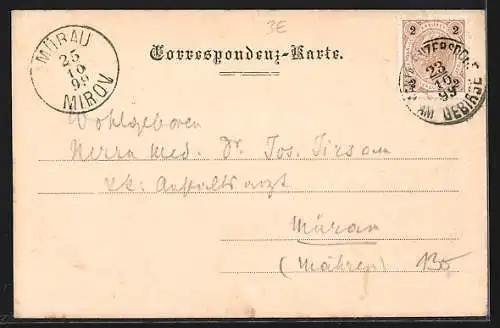 3E
MÜRAU
25
10
99
MIROV
Correspondenz-Karte.
2 2
ENZERSDORF
23
10
99
AM GEBIRGE
Wohlgeboren
Herrn Med. Dr. Jos.
k.k. Anstaltsarzt
Mürau
(Mähren)